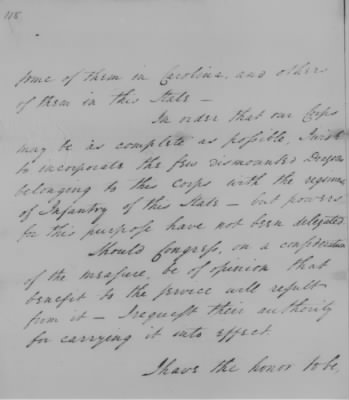 118
some of them in Carolina, and others
of them in this State —
In order that our Corps
may be as complete as possible, I wish
to incorporate the few dismounted Dragoons
belonging to this corps with the regiment
of Infantry of this State — but powers
for this purpose have not been delegated
Should Congress, on a consideration
of the measure, be of opinion that
benefit to the service will result
from it — I request their authority
for carrying it into effect.
I have the honor to be,